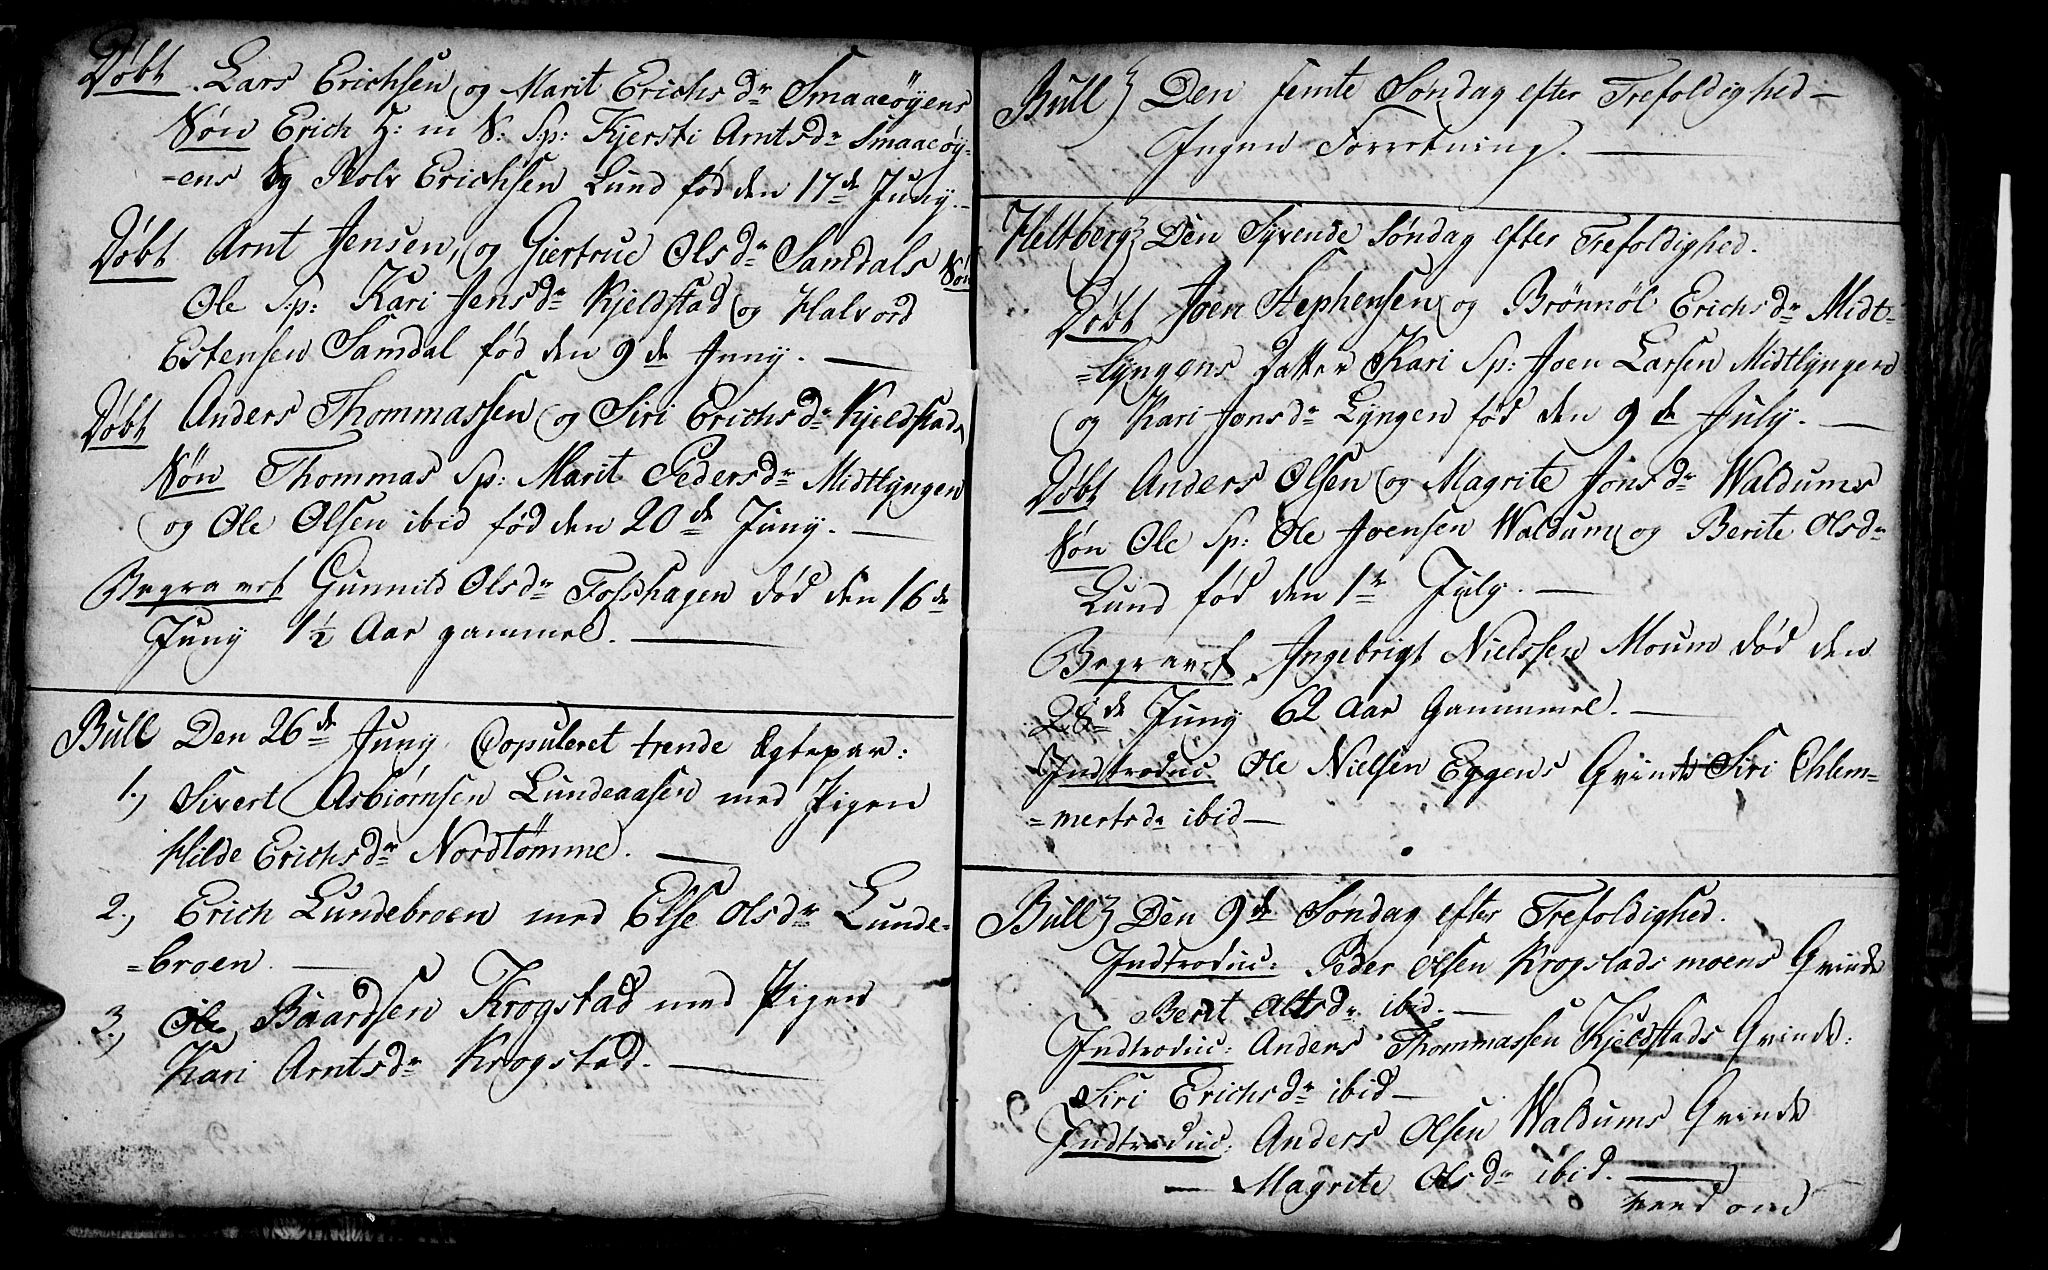 Døbt Lars Erichsen og Marit Erichs dr Smaaeöyens
Søn Erich H: m S: Sp: Kjersti Arntsdr Smaaeöy=
=ens og Rolv Erichsen Lund fød den 17de Juny.
Døbt Arnt Jensen, og Giertrue Olsdr Samdals Søn
Ole S:p: Kari Jensdr Kjeldstad og Halvord
Estensen Samdal fød den 9de Juny. —
Døbt Anders Thommassen og Siri Erichsdr Kjeldstads
Søn Thommas Sp: Marit Pedersdr Midtlyngen
og Ole Olsen ibid fød den 20de Juny. —
Begravet Gunnild Olsdr Fosshagen død den 16de
Juny 1½ Aar gammel. —
Bull Den 26de Juny Copuleret trende Egtepar:
1., Sivert Asbiørnsen Lundeaasen med Pigen
Hilde Erichsdr Nordtømme. —
2., Erich Lundebroen med Else Olsdr Lunde=
=broen. —
3., Ole Baardsen Krogstad med Pigen
Kari Arntsdr Krogstad. —
Bull } Den femte Søndag efter Trefoldighed —
Ingen Forretning. —
Heltberg } Den Syvende Søndag efter Trefoldighed.
Døbt Joen Stephensen og Brønnöl Erichsdr Midt=
=lyngens Datter Kari Sp: Joen Larsen Midtlyngen
og Kari Jonsdr Lyngen fød den 9de July. —
Døbt Anders Olsen og Magrite Jonsdr Waldums
Søn Ole Sp: Ole Joensen Waldum og Berite Olsdr
Lund fød den 1te July. —
Begravet Ingebrigt Nielssen Moum død den
28de Juny 62 Aar Gammel. —
Indtroduc Ole Nielsen Eggens Qvinde Siri Chlem=
=mertsdr ibid —
Bull } Den 9de Søndag efter Trefoldighed.
Indtroduc: Peder Olsen Krogstadsmoens Qvinde
Berit Olsdr ibid. —
Indtroduc: Anders Thommassen Kjeldstads Qvinde:
Siri Erichsdr ibid —
Indtroduc: Anders Olsen Waldums Qvinde
— Magrite Olsdr ibid. —
vend om